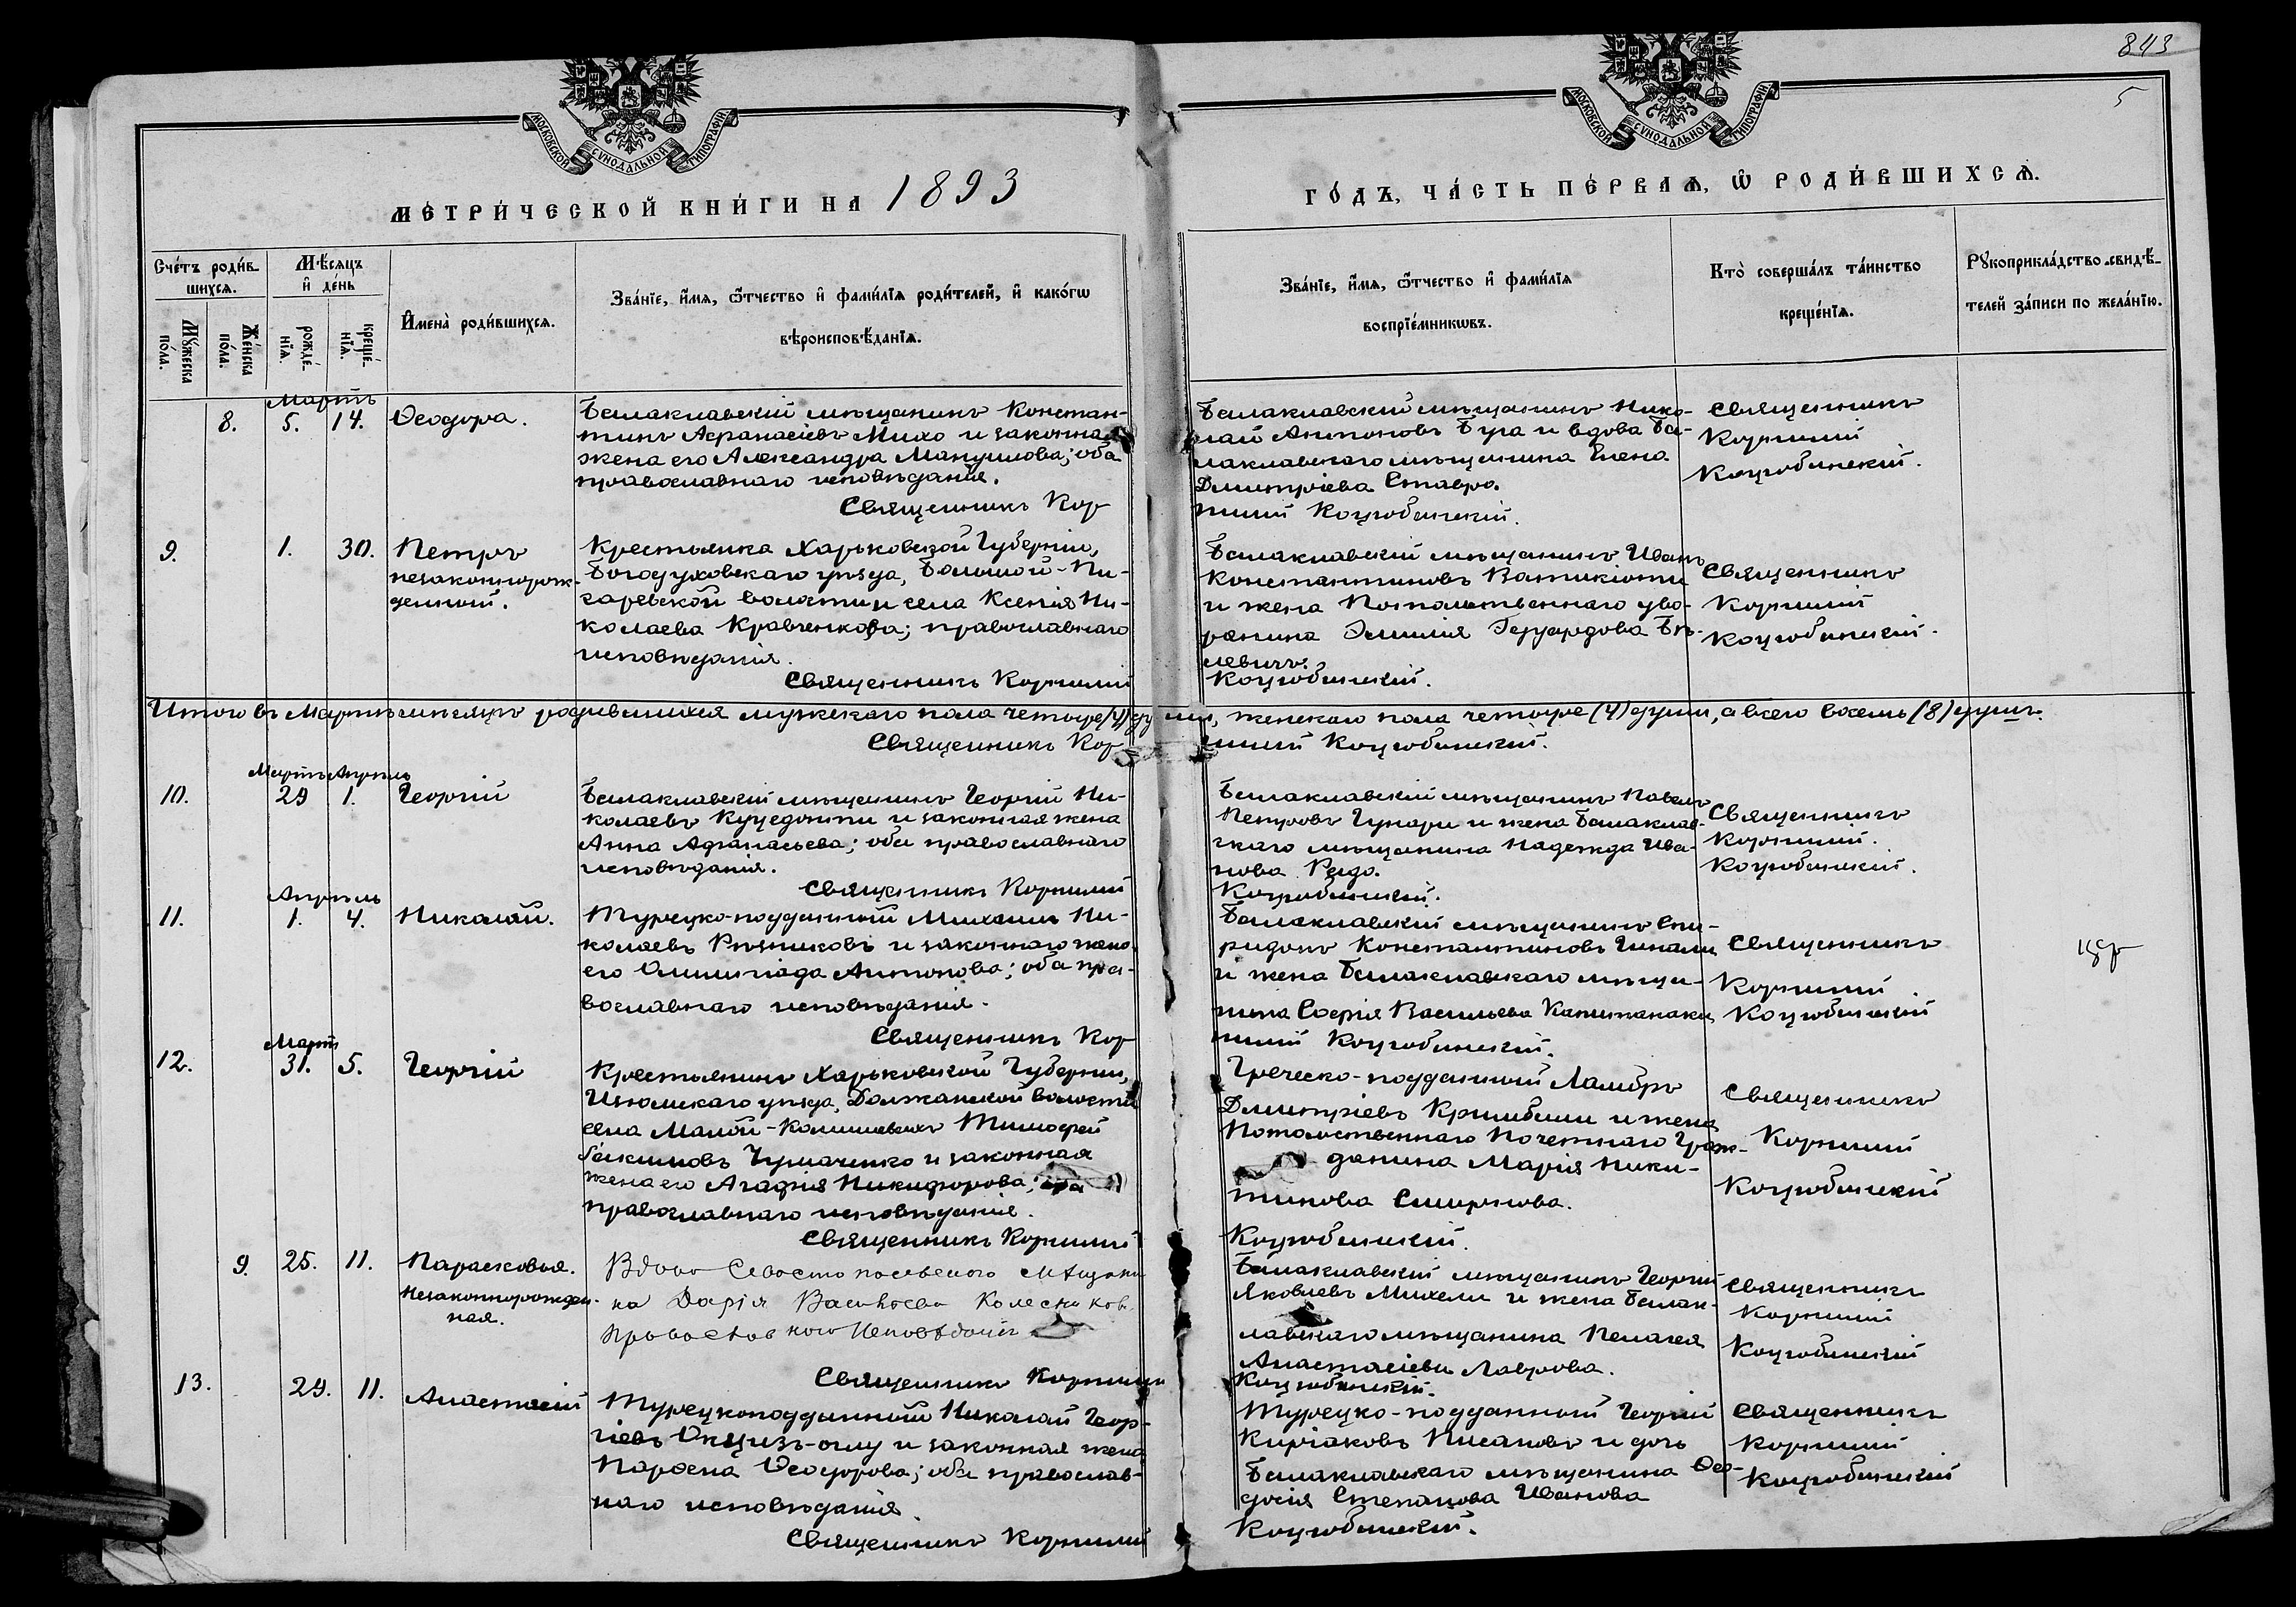 843
5
МОСКОВСКОЙ СѴНОДАЛЬНОЙ ТИПОГРАФІИ
МОСКОВСКОЙ СѴНОДАЛЬНОЙ ТИПОГРАФІИ
МЕТРИЧЕСКОЙ КНИГИ НА 1893
ГОДЪ, ЧАСТЬ ПЕРВАЯ, Ѡ РОДИВШИХСЯ.
Счетъ родив-
шихся.
Мѣсяцъ
и день
Имена родившихся.
Званіе, имя, ѿтчество и фамилія родителей, и какогѡ
вѣроисповѣданія.
Мꙋжеска
пола.
Женска
пола.
рожде-
нія.
креще-
нія.
Званіе, имя, ѿтчество и фамилія
воспріемникѡвъ.
Кто совершалъ таинство
крещенія.
Рꙋкоприкладство свидѣ-
телей записи по желанію.
Мартъ
8. 5. 14. Ѳеодора.
Балаклавскій мѣщанинъ Констан-
тинъ Аѳанасіевъ Михо и законная
жена его Александра Мануилова; оба
православнаго исповѣданія.
Священникъ Кор
Балаклавскій мѣщанинъ Нико-
лай Антоновъ Буга и вдова Ба-
лаклавскаго мѣщанина Елена
Дмитріева Ставро.
нилій Коцюбинскій.
Священникъ
Корнилій
Коцюбинскій.
9. 1. 30. Петръ
незаконнорож-
денный.
Крестьянка Харьковской Губерніи,
Богодуховскаго уѣзда, Большой-Пи-
саревской волости и села Ксенія Ни-
колаева Кравченкова; православнаго
исповѣданія.
Священникъ Корнилій
Балаклавскій мѣщанинъ Иванъ
Константиновъ Ватикіоти
и жена Потомственнаго дво-
рянина Эмилія Эдуардова Бѣ-
левичъ.
Коцюбинскій.
Священникъ
Корнилій
Коцюбинскій.
Итого въ Мартѣ мѣсяцѣ родившихся мужескаго пола четыре (4) души, женскаго пола четыре (4) души, а всего восемь (8) душъ.
Священникъ Кор
нилій Коцюбинскій.
Мартъ Апрѣль
10. 29 1. Георгій
Балаклавскій мѣщанинъ Георгій Ни-
колаевъ Куцедонти и законная жена
Анна Афанасьева; оба православнаго
исповѣданія.
Священникъ Корнилій
Балаклавскій мѣщанинъ Павелъ
Петровъ Гунари и жена Балаклав-
скаго мѣщанина Надежда Ива-
нова Ридо.
Коцюбинскій.
Священникъ
Корнилій.
Коцюбинскій.
Апрѣль
11. 1. 4. Николай.
Турецко-подданный Михаилъ Ни-
колаевъ Рѣзниковъ и законная жена
его Олимпіада Антонова; оба пра-
вославнаго исповѣданія.
Священникъ Кор
Балаклавскій мѣщанинъ Спи-
ридонъ Константиновъ Гинали
и жена Балаклавскаго мѣща-
нина Софія Васильева Капитанаки
нилій Коцюбинскій.
Священникъ
Корнилій
Коцюбинскій
Мартъ
12. 31. 5. Георгій
Крестьянинъ Харьковской Губерніи,
Изюмскаго уѣзда, Должанской волости
села Малой-Комишевахи Тимофей
Чумаченко и законная
жена его Агафія Никифорова; оба
православнаго исповѣданія.
Священникъ Корнилій
Греческо-подданный Ламбръ
Дмитріевъ Кримбили и жена
Потомственнаго Почетнаго Граж-
данина Марія Ники-
тинова Смирнова.
Коцюбинскій.
Священникъ
Корнилій
Коцюбинскій
9. 25. 11. Парасковья.
Незаконнорожден-
ная.
Вдова Севастопольскаго мѣщани
на Дарія Васильева Колесников.
Православнаго Исповѣданія
Священникъ Корнилій
Балаклавскій мѣщанинъ Георгій
Яковлевъ Михели и жена Балак-
лавскаго мѣщанина Пелагея
Анастасіева Лаврова.
Коцюбинскій.
Священникъ
Корнилій
Коцюбинскій
13. 29. 11. Анастасій
Турецкоподданный Николай Геор-
гіевъ Экцизъ-оглу и законная жена
Парѳена Ѳеодорова; оба православ-
наго исповѣданія.
Священникъ Корнилій
Турецко-подданный Георгій
Киріаковъ Писановъ и дочь
Балаклавскаго мѣщанина Ѳео-
досія Степанова Иванова
Коцюбинскій.
Священникъ
Корнилій
Коцюбинскій